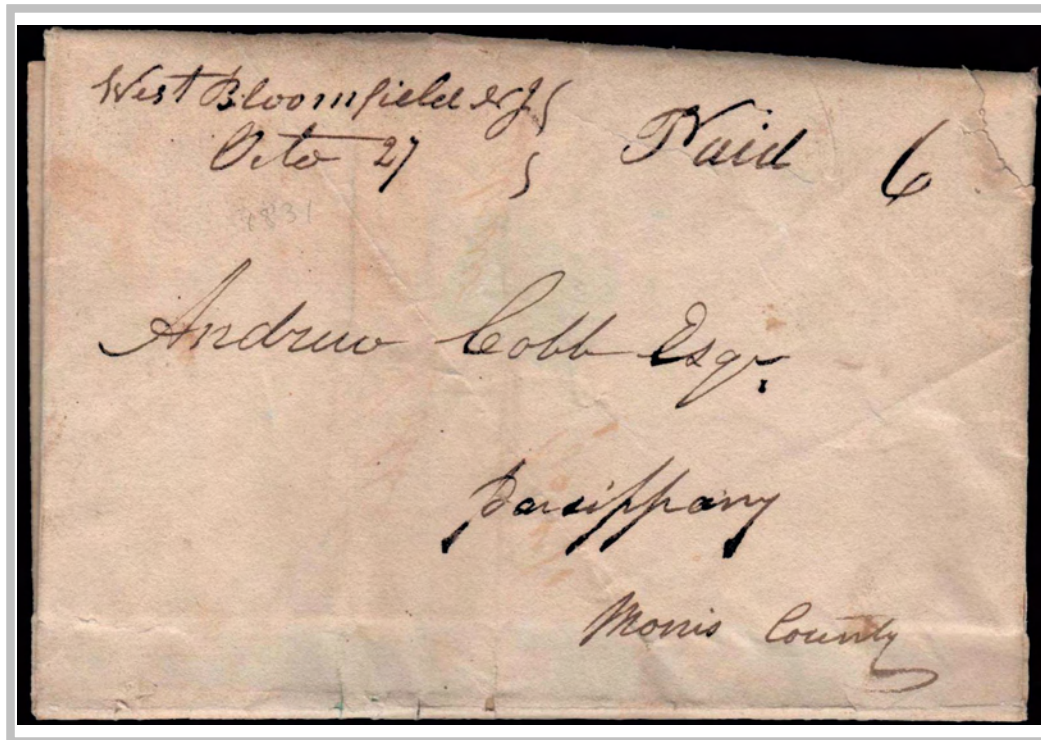 West Bloomfield NJ
Octo 27
Paid 6
1831
Andrew Cobb Esqr.
Parsippany
Morris County